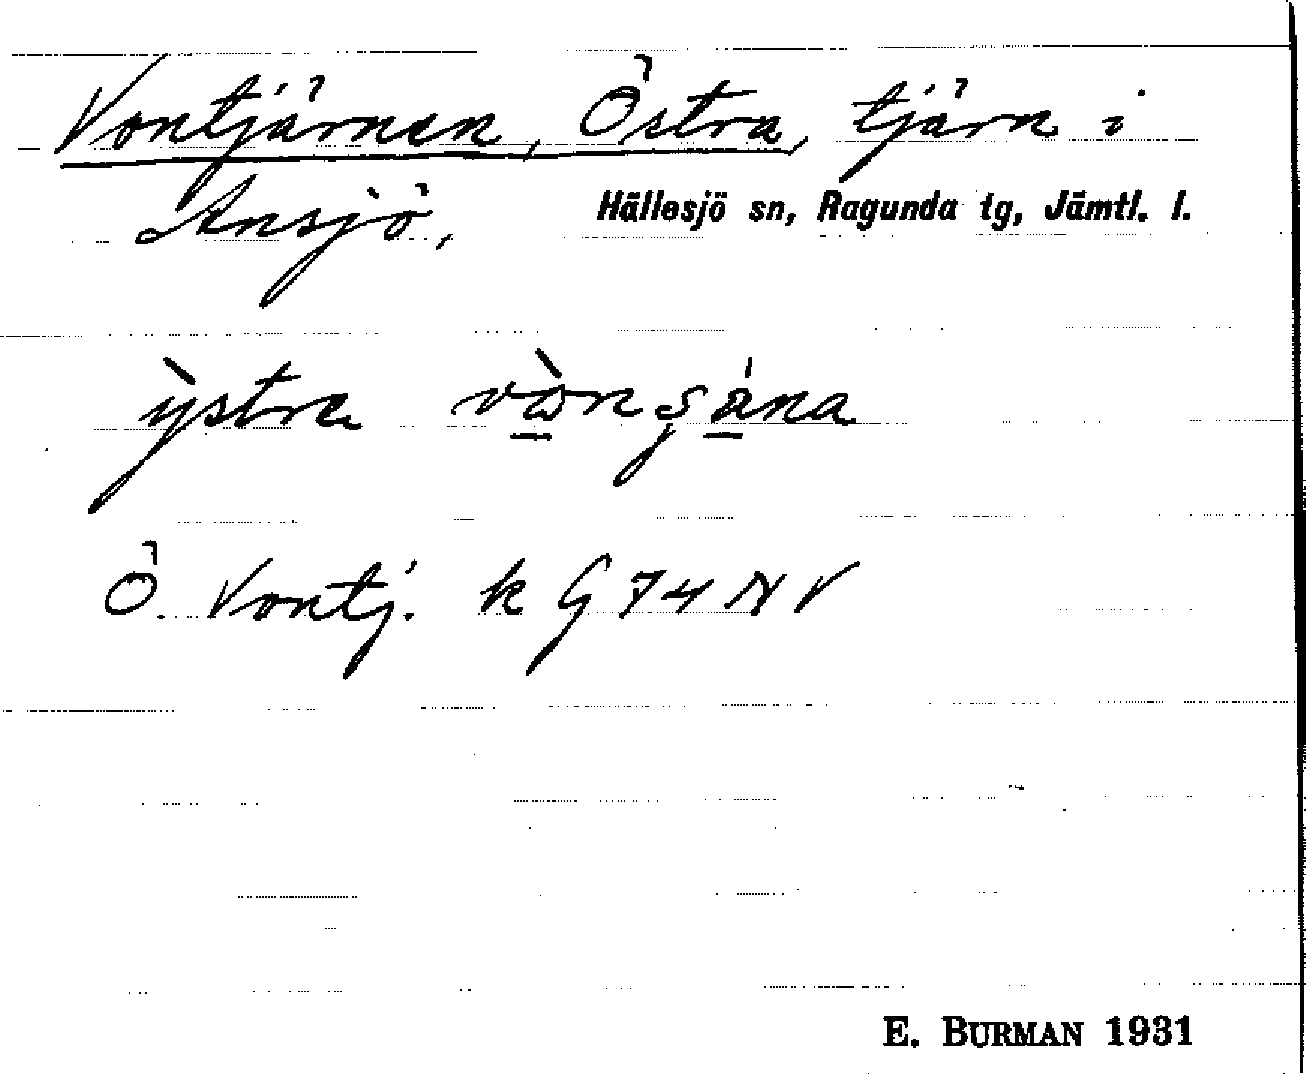 Vontjärnen, Östra, tjärn i
Ansjö, Hällesjö sn, Ragunda tg, Jämtl. l.
ỳstre
Ö. Vontj. k G 74 NV
E. BURMAN 1931